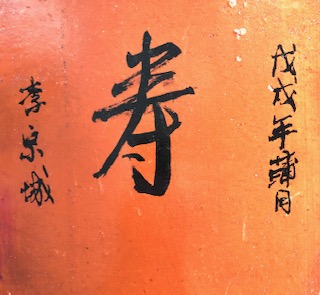 戊戌年蒲月
寿
李宗城